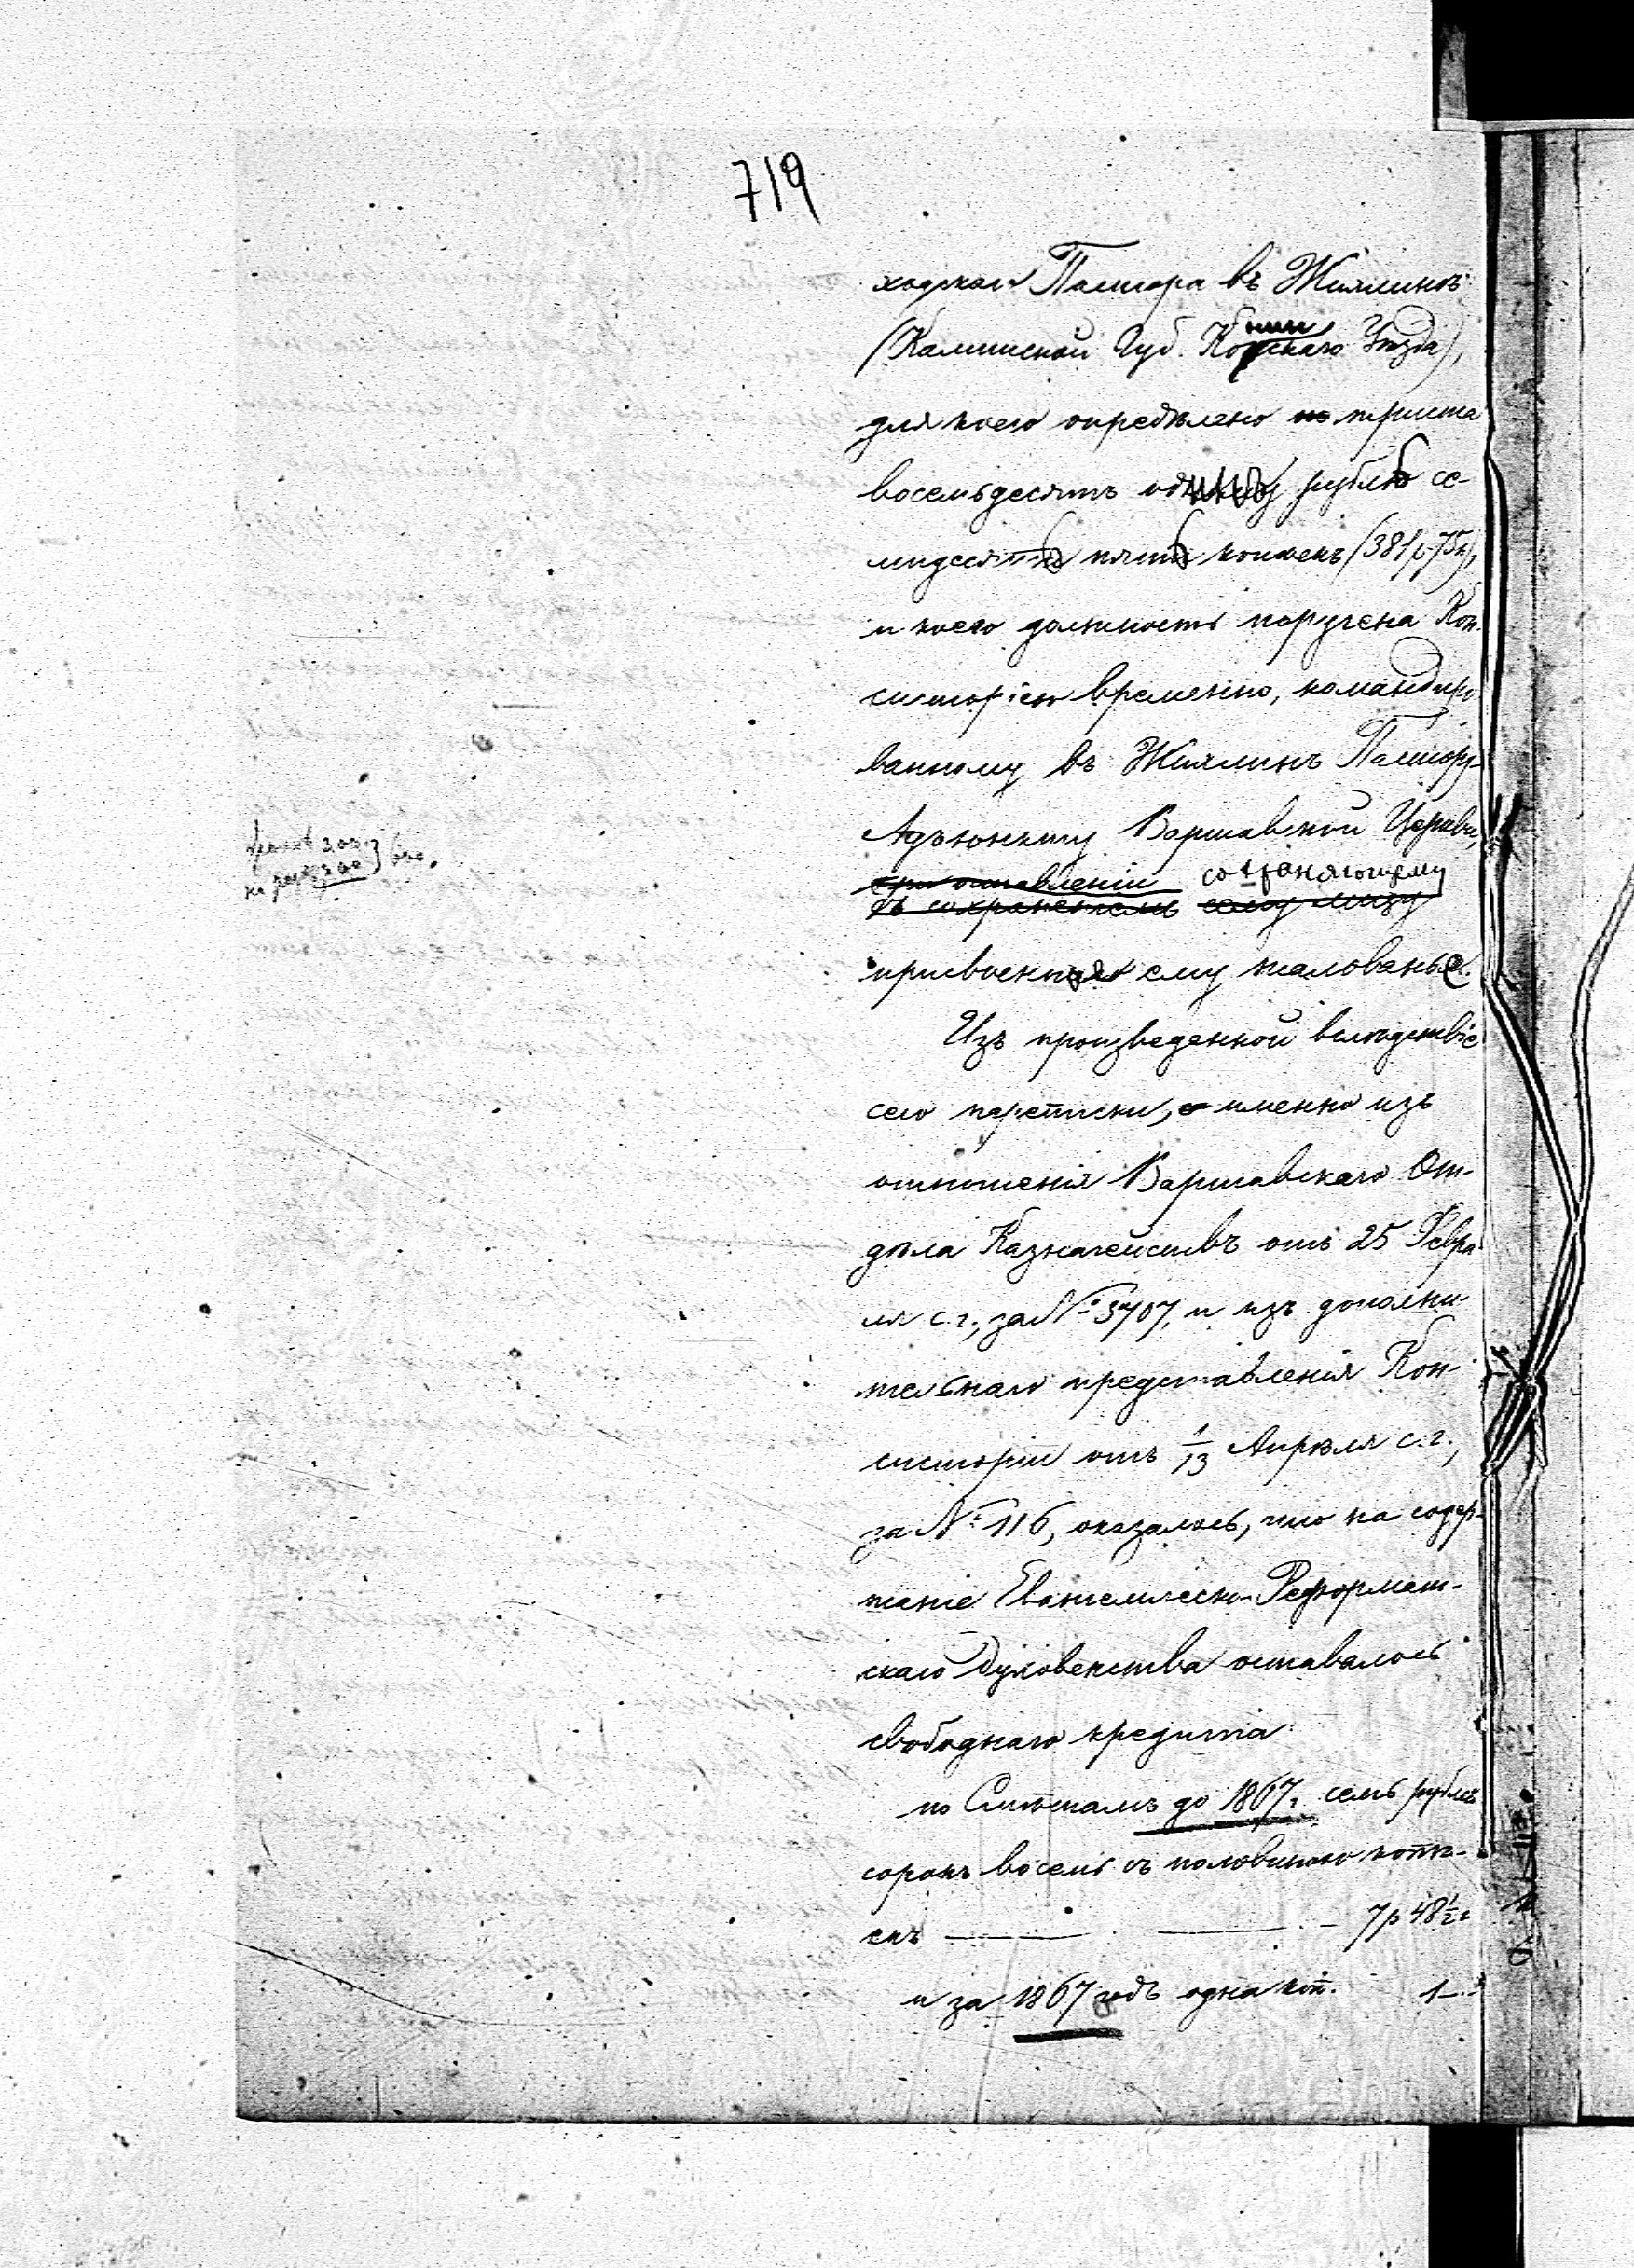 719
ходскаго Пастора въ Жиллинѣ
(Калишской Губ. Конинскаго Уѣзда),
для коего опредѣлено триста
восемьдесятъ рубль се-
мьдесятъ пять копѣекъ (381 р. 75 к),
и коего должность поручена Кон-
систоріею временно, командиро-
ванному въ Жиллинъ Пастору-
Адъюнкту Варшавской Церкви,
при оставленіи сохраняющему
съ сохраненіемъ сему лицу
присвоенное ему жалованье.
Изъ произведенной вслѣдствіе
сего переписки, именно изъ
отношенія Варшавскаго От-
дѣла Казначействъ отъ 25 Февра-
ля с. г., за № 3707, и изъ дополни-
тельнаго представленія Кон-
систоріи отъ 1/13 Апрѣля с. г.,
за № 116, оказалось, что на содер-
жаніе Евангелическо-Реформат-
скаго Духовенства оставалось
свободнаго кредита:
по Смѣтамъ до 1867 г. семь рублей
сорокъ восемь съ половиною копѣ-
екъ — — 7 р 48 1/2 к
и за 1867 годъ одна коп. 1 —